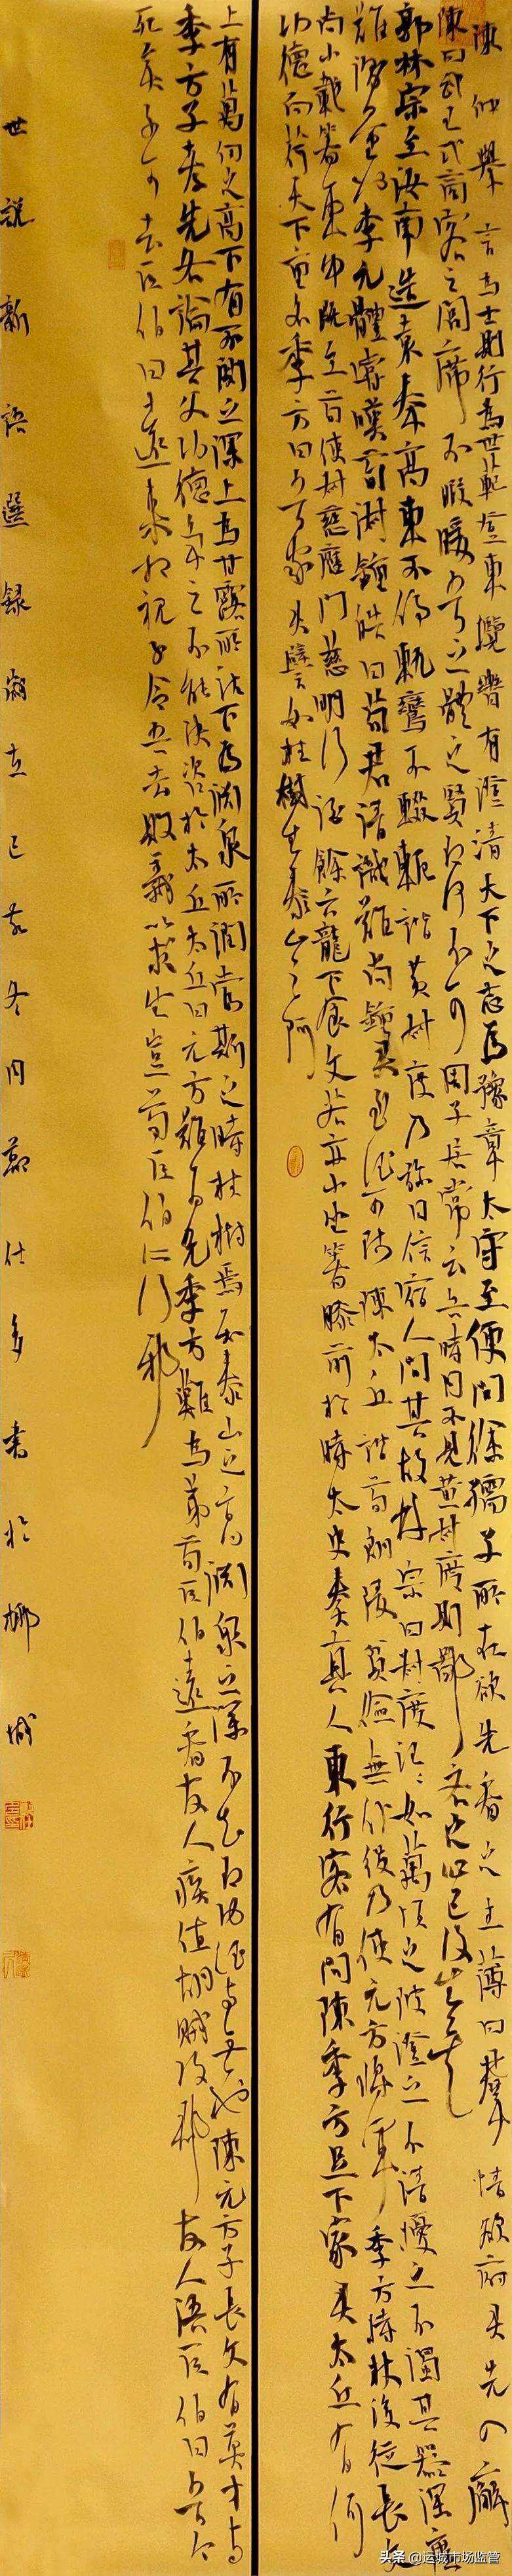 陳仲舉言為士則行為世範登車攬轡有澄清天下之志為豫章太守至便問徐孺子所在欲先看之主薄曰羣情欲府君先入廨
陳曰武王式商容之閭席不暇暖吾之禮之賢有何不可周子居常云吾時月不見黃叔度則鄙吝之心已復生矣
郭林宗至汝南造袁奉高車不停軌鸞不輟軛詣黃叔度乃彌日信宿人問其故林宗曰叔度汪汪如萬頃之陂澄之不清擾之不濁其器深廣
難測量也李元禮嘗嘆荀淑鍾皓曰荀君清識難尚鍾君至德可師陳太丘詣荀朗陵貧儉無僕役乃使元方將車季方持杖後從長文
尚小載著車中既至荀使叔慈應門慈明行酒餘六龍下食文若亦小坐著膝前於時太史奏真人東行客有問陳季方足下家君太丘有何
功德而荷天下重名季方曰吾家君譬如桂樹生泰山之阿
上有萬仞之高下有不測之深上為甘露所沾下為淵泉所潤當斯之時桂樹焉知泰山之高淵泉之深不知有功德與無也陳元方子長文有英才與
季方子孝先各論其父功德爭之不能決咨於太丘太丘曰元方難為兄季方難為弟荀巨伯遠看友人疾值胡賊攻郡友人語巨伯曰吾今
死矣子可去巨伯曰遠來相視子令吾去敗義以求生豈荀巨伯所行邪
世說新語選錄歲在己亥冬月鄭仕多書於椰城
頭条 @运城市场监管